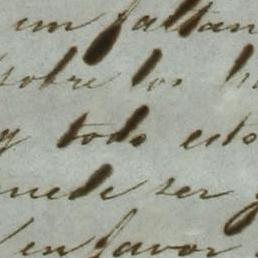 un faltan
sobre los
y todo esto
puede ser
en favor